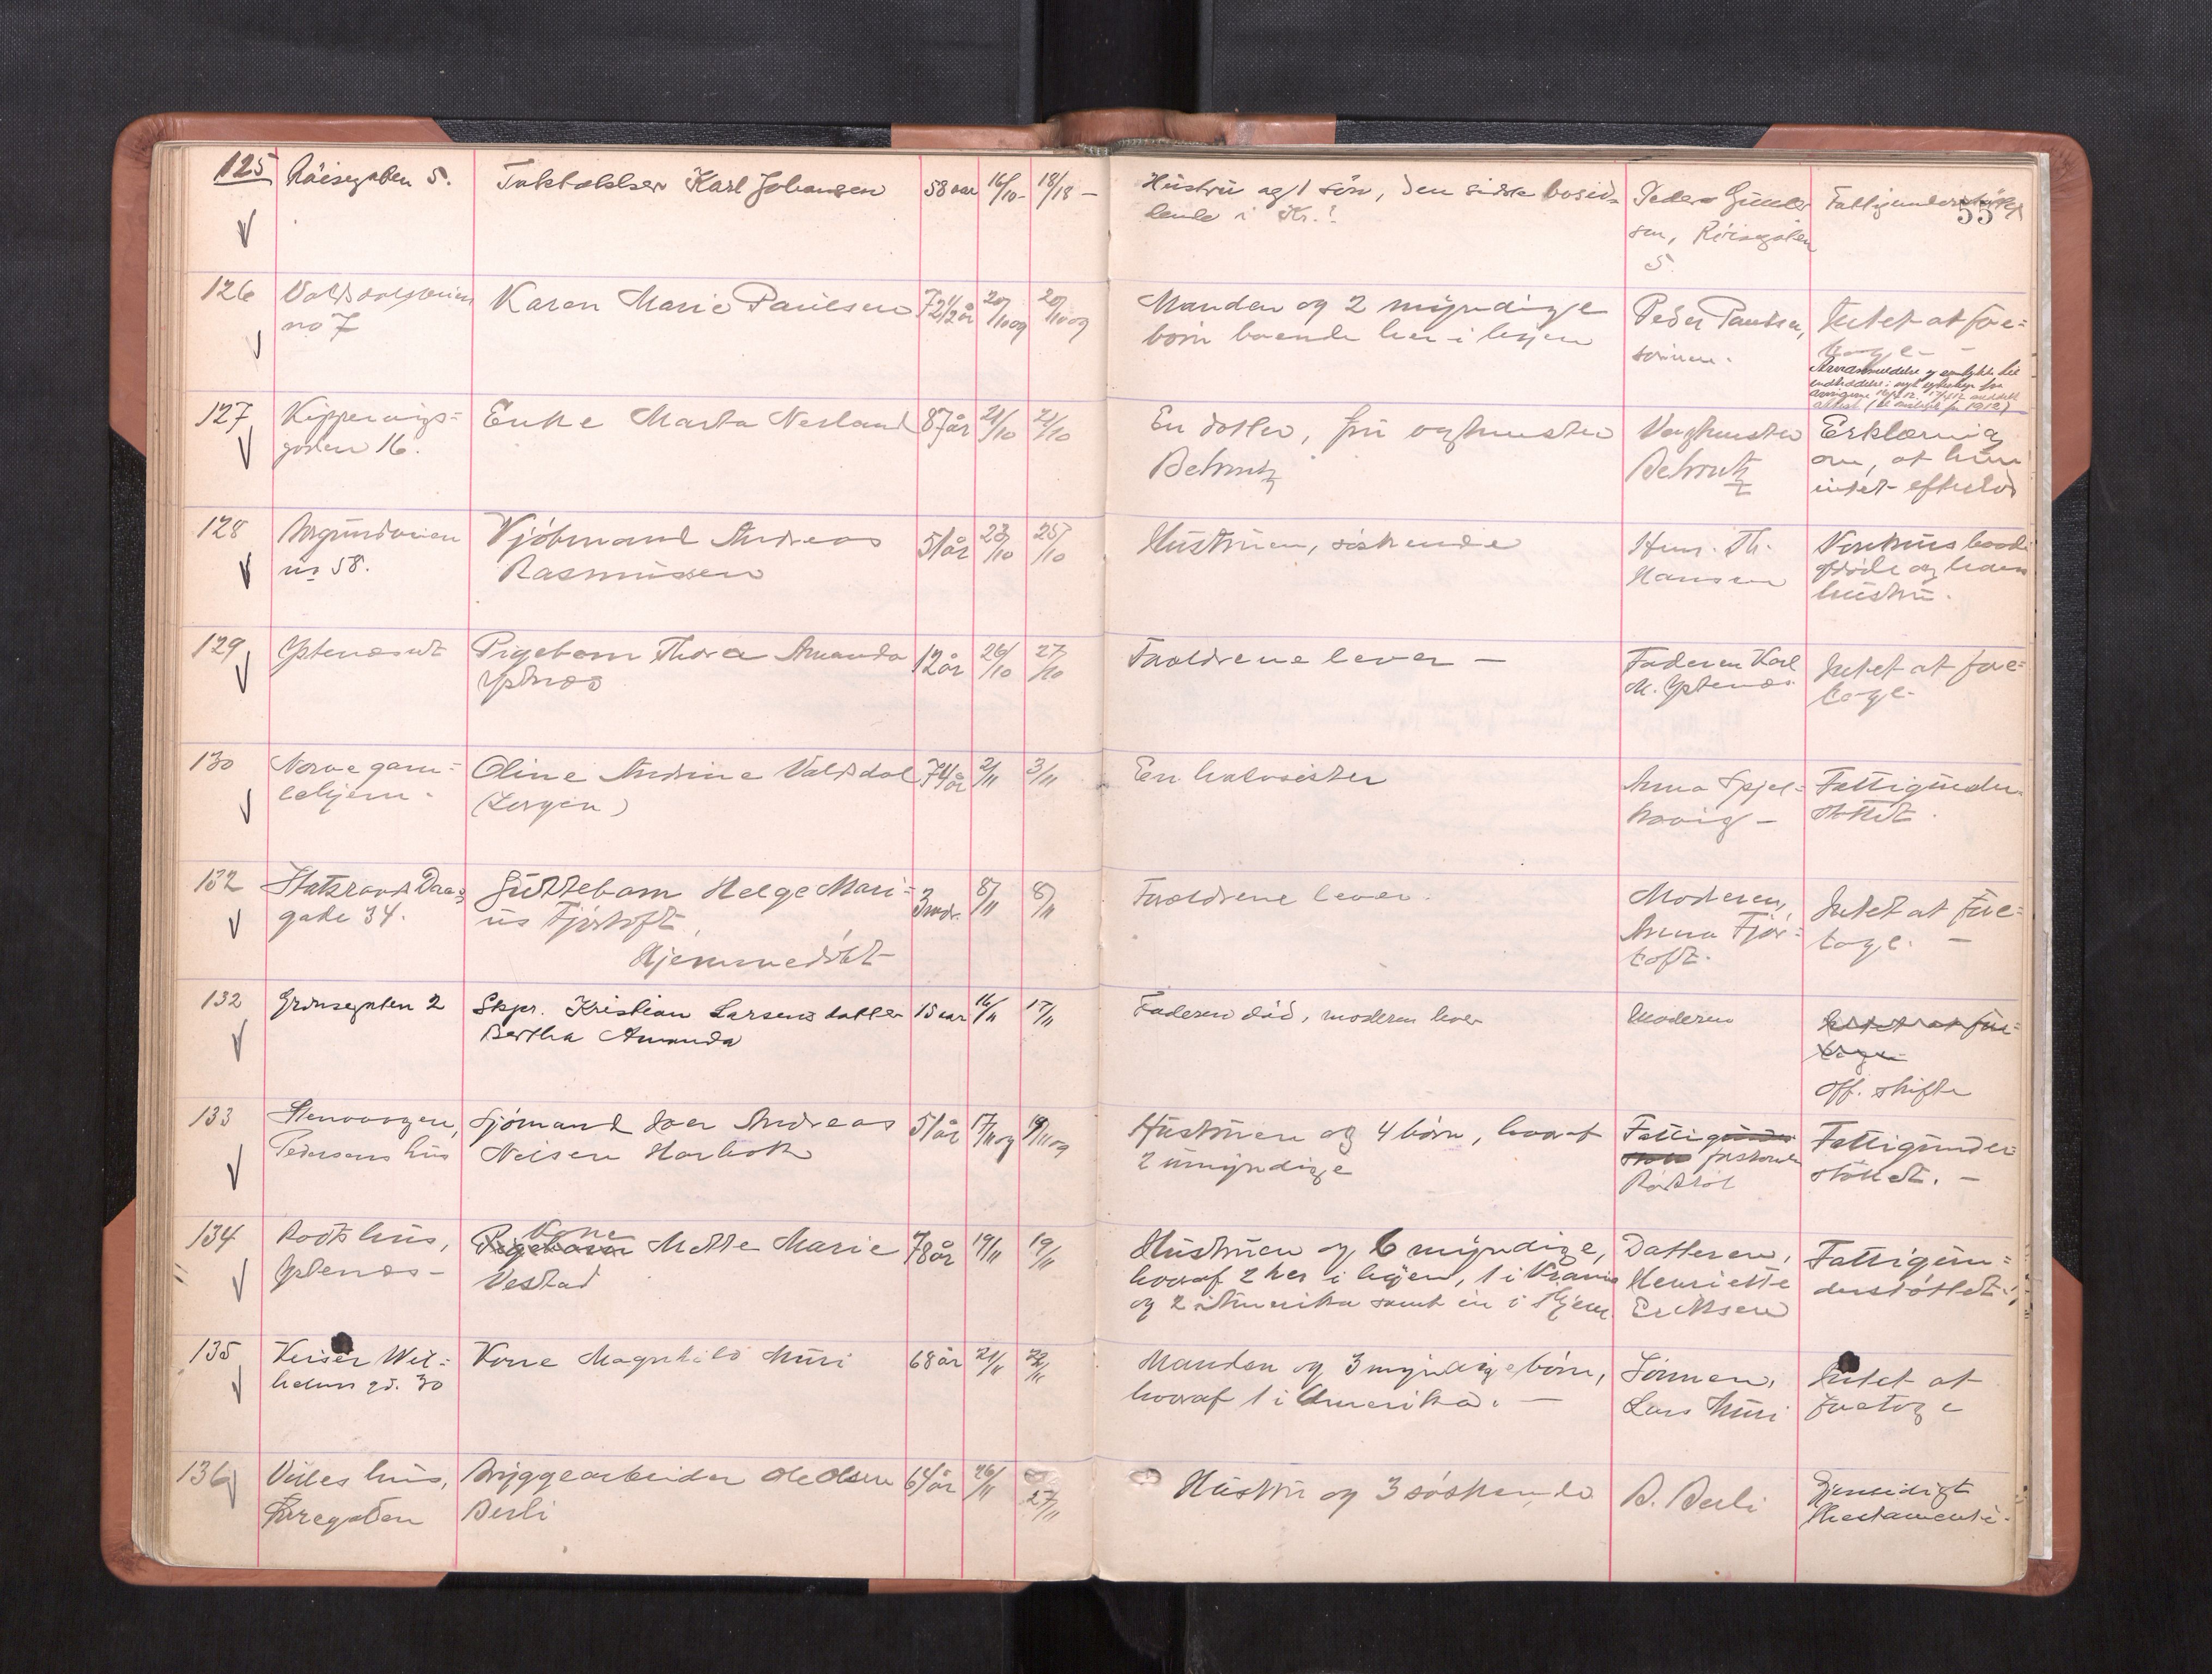 125 Röisegaten 5. Taktækker Karl Johansen 58 aar 16/10- 18/18 - Hustru og 1 sön, den sidste bosid-
dende i Kr.! Peder Gunder
sen, Röisegaten
5. Fattigunderstöttet
55
126 Valdsdalsveien
no 7 Karen Marie Paulsen 72 1/2 år 20/10 og 20/10 og Manden og 2 myndige
börn boende her i byen Peder Paulsen,
sönnen. Intet at fore=
tage -
127 Kippervigs=
gaden 16. Enke Marta Nesland 87 år 21/10 21/10 En datter, fru
Behrentz
Behrentz Erklæring
om, at hun
intet efterlod
128 Borgundveien
nr 58. Kjöbmand Andreas
Rasmussen 51 år 23/10 25/10 Hustruen, söskende Hans. Th.
Hansen
hustru.
129 Ystenæsut Pigebarn Thora Amanda
Ystnæs 12 år 26/10 27/10 Forældrene lever - Faderen Karl
M. Ystenæs. Intet at fore=
tage.
130 Nørve gam=
lehjem. Oline Andrine Valdsdal
(Lorgen) 74 år 2/11 3/11 En halvsöster Anna Spjel=
kavig - Fattigunder
stöttet.
132 Statsraad Daaes
gate 34. Guttebarn Helge Mari=
us Fjörtoft,
Hjemmedöbt 3 mdr. 8/11 8/11 Forældrene lever. Moderen,
Anna Fjör=
toft. Intet at fore=
tage. -
132 Grönsegaten 2 Skpr. Kristian Larsens datter
Bertha Amanda 15 aar 16/11 17/11 Faderen död, moderen lever Moderen Intet at fore=
tage
off. skifte
133 Stenvaagen,
Pedersens hus Sjömand Joen Andreas
Nelsen Harbok 51 år 17/11 og 19/11 og Hustruen og 4 börn, hvoraf
2 umyndige Fattig
Fattigunder=
stöttet. -
134 Rods hus,
Ystenæs - Pigebarn Kone Mette Marie
Vestad 78 år 19/11 19/11 Hustruen og 6 myndige,
hvoraf 2 her i byen, 1 i
og 2 i Amerika samt en i Hjem Datteren,
Henriette
Eriksen Fattigun=
derstöttet.
135 Keiser Wil=
helms gd. 30 Kone Magnhild Muri 68 år 21/11 22/11 Manden og 3 myndige börn,
hvoraf 1 i Amerika. - Sönnen,
Lars Muri Intet at
foretage
136 Velles hus,
Öregaten Bryggearbeider Ole Olsen
Berli 64 år 26/11 27/11 Hustru og 3 söskende B. Berli Gjensidigt
Thestamente.